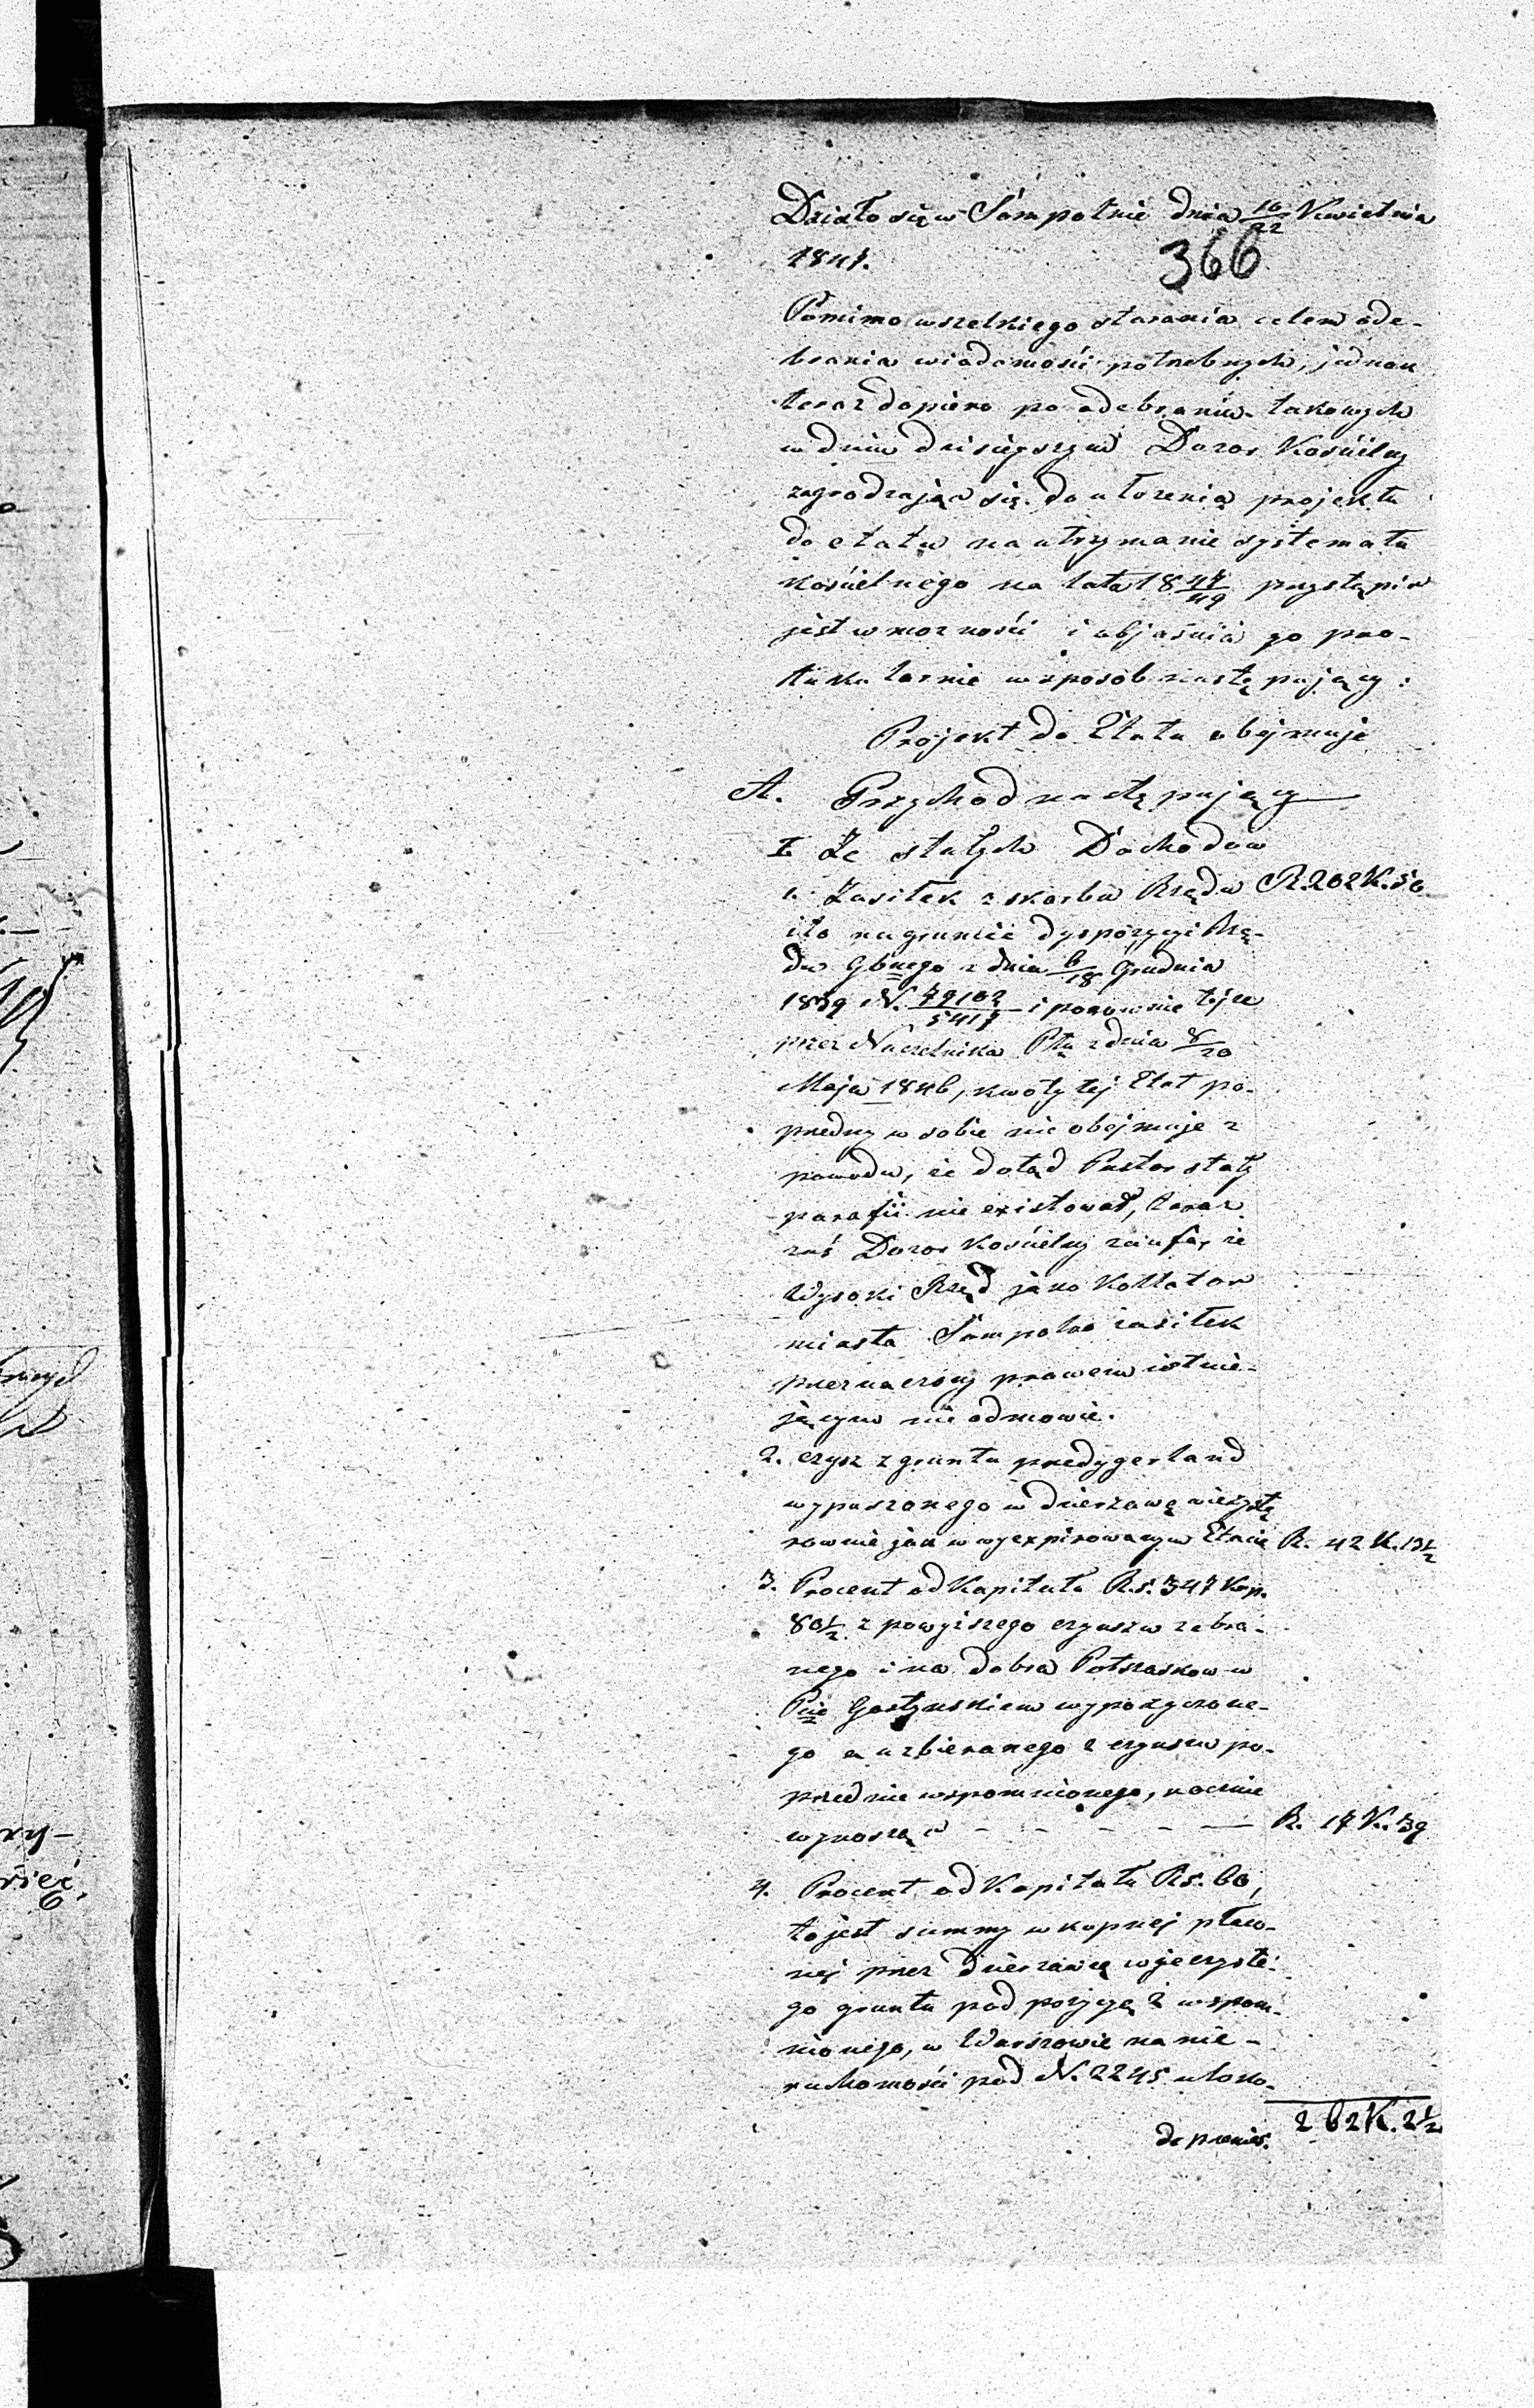 Działo się w Sompolnie dnia 10/22 Kwietnia
1847.
366
Pomimo wszelkiego starania celem ode-
brania wiadomości potrzebnych, jednak
teraz dopiero po odebraniu takowych
w dniu dzisiejszym Dozor Kościelny
zagrodzając się do ułożenia projektu
do etatu na utrzymanie systematu
kościelnego na lata 18 47/49 przystąpić
jest w możności i objaśnia go pro-
tukularnie w sposób następujący:
Projekt do Etatu obejmuje
A. Przychod następujący
I. Ze stałych Dochodów
1. Zasiłek z skarbu Rządu R. 202 K. 50
ito na gruncie dyspozycyi Rzą-
du Gbnego z dnia 6/18 Grudnia
1839 N. 79102/5417 i ponownie tejże
przez Naczelnika Ptu z dnia 8/20
Maja 1846, kwoty tej Etat po-
przedny w sobie nie obejmuje z
powodu, że dotąd Pastor stały
parafii nie existował, teraz
zaś Dozor Kościelny zaufa, że
Wysoki Rząd jako Kollator
miasta Sompolna zasiłek
przeznaczony prawem istnie-
jącym nie odmowie.
2. czysz z gruntu predygerland
wypuszonego w dzierzawę wieczystą
rownie jak w wyexpirowanym Etacie R. 42 K. 13½
3. Procent od Kapitału R.s. 347 Kop.
80½ z powyższego czynszu zebra-
nego i na dobra Potrzaskow w
Pcie Gostyńskiem wypożyczone-
go a uzbieranego z czynszu po-
przednie wspomnionego, rocznie
wynoszący - - - - - R. 17 K. 39
4. Procent od Kapitału Rs. 60,
to jest summy wkupnej płaco-
nej przez dzierzawcę wjeczyste-
go gruntu pod pozycyą 2 wspom-
nionego, w Warszowie na nie-
ruchomości pod N. 2245 uloko-
do przenies. 262 K. 2½